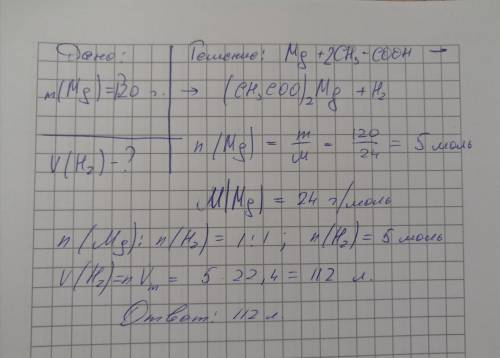 Дано:
m(Mg)=120 г.
V(H₂)-?
Решение: Mg + 2CH₃-COOH →
→ (CH₃COO)₂Mg + H₂
n(Mg) = m/M = 120/24 = 5 моль
M(Mg) = 24 г/моль
n(Mg) : n(H₂) = 1:1 ; n(H₂) = 5 моль
V(H₂)=nVₘ = 5·22,4 = 112 л.
Ответ: 112 л.